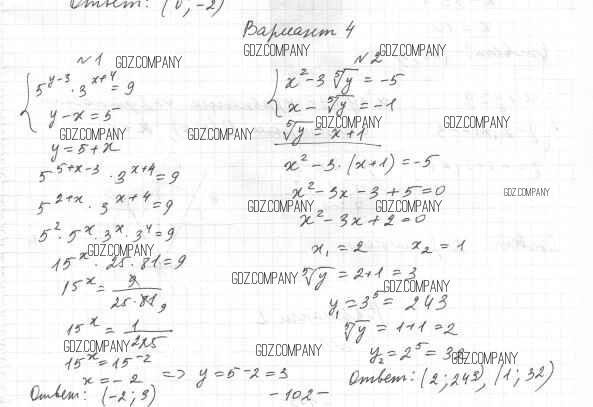 Ответ: (0; -2)
Вариант 4
№1
GDZ.COMPANY
5^{y-3} · 3^{x+4} = 9
y - x = 5
GDZ.COMPANY
y = 5 + x
5^{5+x-3} · 3^{x+4} = 9
5^{2+x} · 3^{x+4} = 9
5^2 · 5^x · 3^x · 3^4 = 9
GDZ.COMPANY
15^x · 25 · 81 = 9
15^x = 9 / 25·81 9
15^x = 1 / 225
GDZ.COMPANY
15^x = 15^{-2}
x = -2 => y = 5 - 2 = 3
Ответ: (-2; 3)
GDZ.COMPANY
GDZ.COMPANY
№2
x^2 - 3 \sqrt[5]{y} = -5
x - \sqrt[5]{y} = -1
GDZ.COMPANY
GDZ.COMPANY
GDZ.COMPANY
\sqrt[5]{y} = x + 1
x^2 - 3 · (x+1) = -5
x^2 - 3x - 3 + 5 = 0
GDZ.COMPANY
GDZ.COMPANY
GDZ.COMPANY
x^2 - 3x + 2 = 0
x_1 = 2 x_2 = 1
GDZ.COMPANY
\sqrt[5]{y} = 2+1 = 3
GDZ.COMPANY
y_1 = 3^5 = 243
\sqrt[5]{y} = 1+1 = 2
GDZ.COMPANY
y_2 = 2^5 = 32
GDZ.COMPANY
Ответ: (2; 243), (1; 32)
-102-